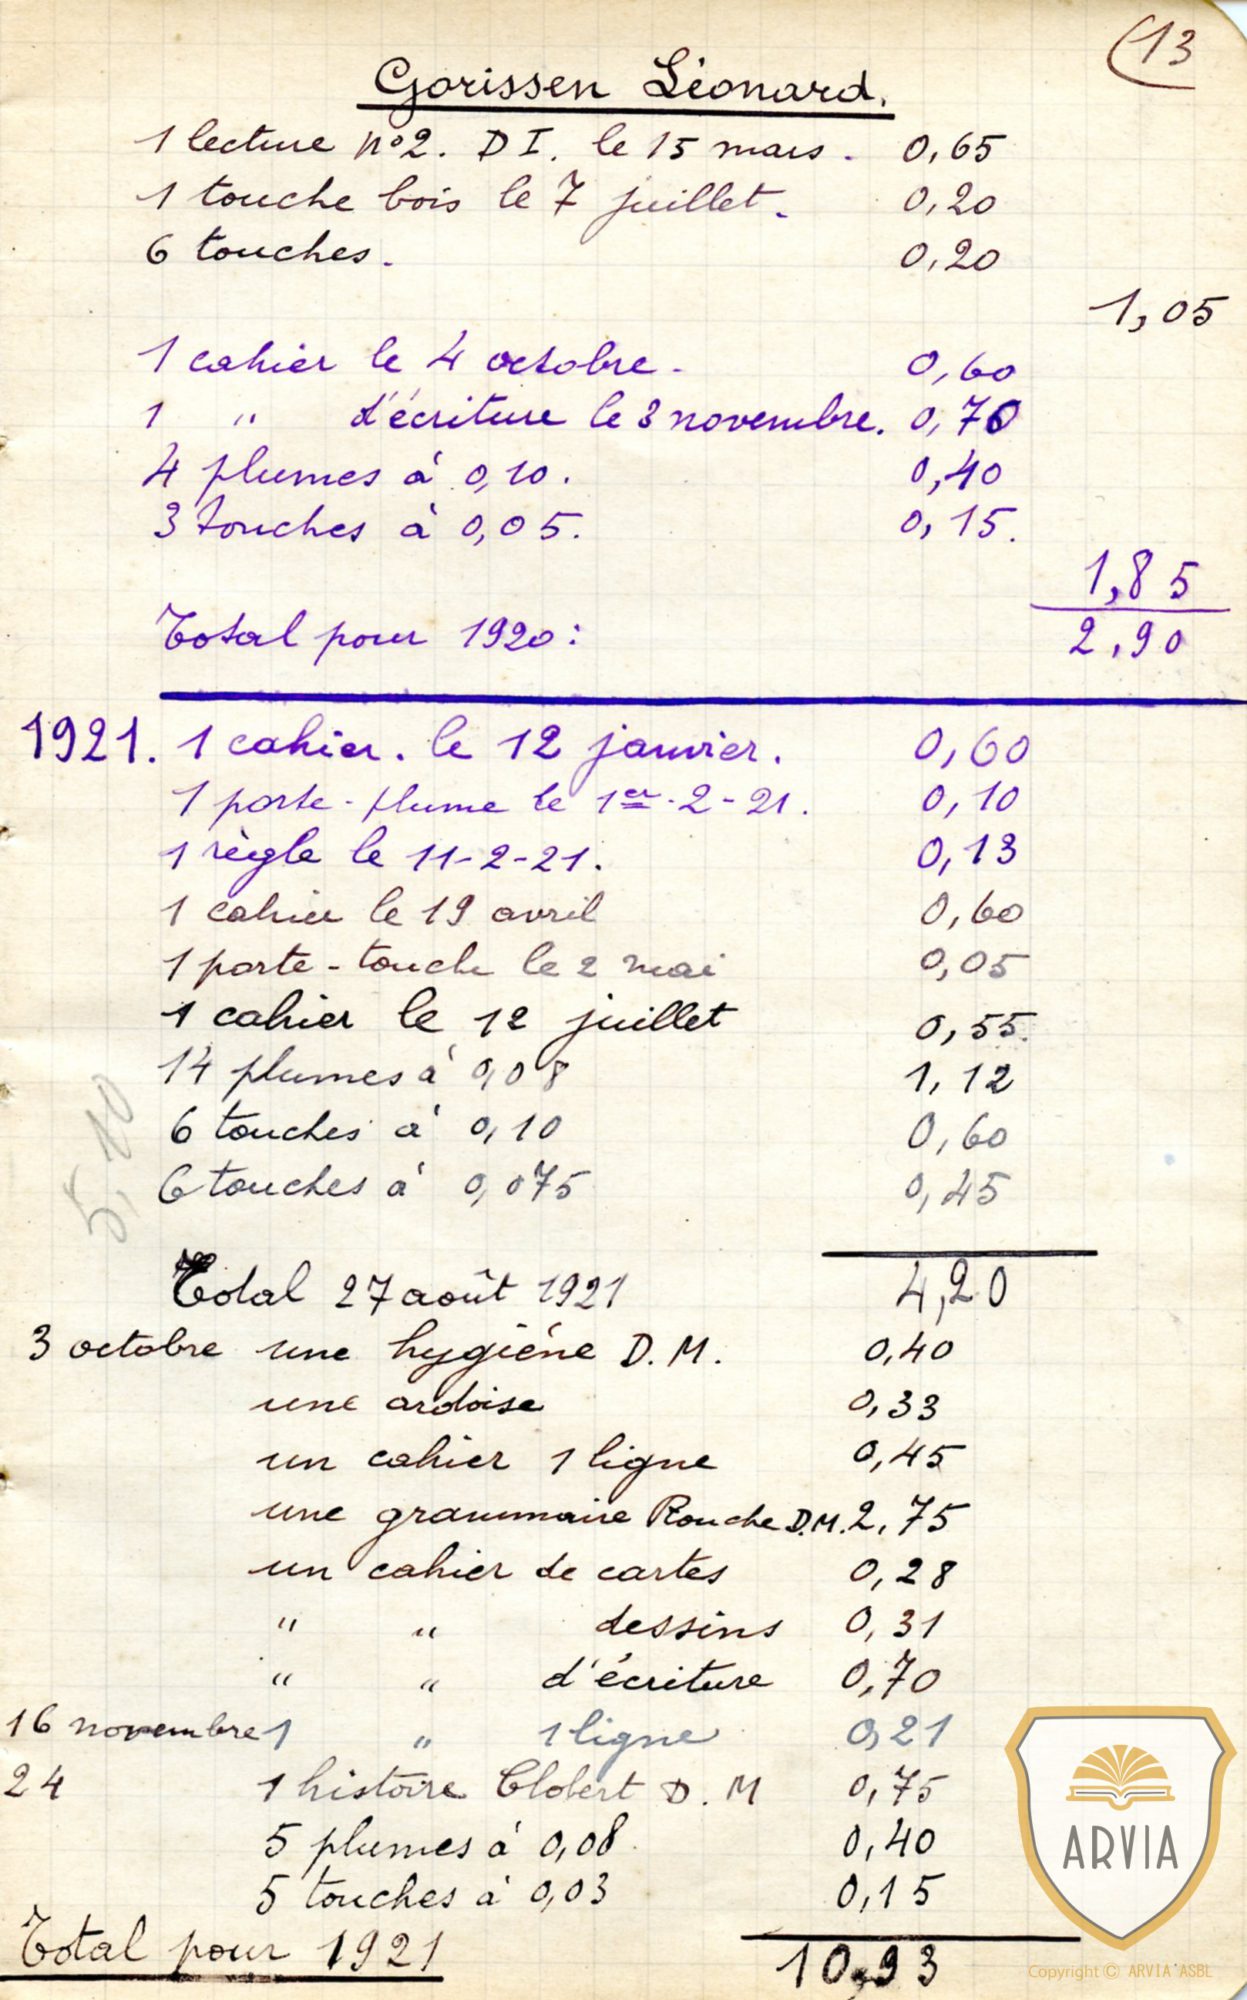 (13
Gorissen Léonard.
1 lecture n°2. D I. le 15 mars. 0,65
1 touche bois le 7 juillet. 0,20
6 touches. 0,20
1,05
1 cahier le 4 octobre. 0,60
1 " d'écriture le 3 novembre. 0,70
4 plumes à 0,10. 0,40
3 touches à 0,05. 0,15.
1,85
Total pour 1920: 2,90
1921. 1 cahier. le 12 janvier. 0,60
1 porte-plume le 1er-2-21. 0,10
1 règle le 11-2-21. 0,13
1 cahier le 19 avril 0,60
1 porte-touche le 2 mai 0,05
1 cahier le 12 juillet 0,55.
14 plumes à 0,08 1,12
6 touches à 0,10 0,60
6 touches à 0,075 0,45
5,10
Total 27 août 1921 4,20
3 octobre une hygiéne D.M. 0,40
une ardoise 0,33
un cahier 1 ligne 0,45
une grammaire Rouche D.M. 2,75
un cahier de cartes 0,28
" " dessins 0,31
" " d'écriture 0,70
16 novembre 1 " 1 ligne 0,21
24 1 histoire Clobert D.M 0,75
5 plumes à 0,08 0,40
5 touches à 0,03 0,15
Total pour 1921 10,93
ARVIA
Copyright © ARVIA ASBL